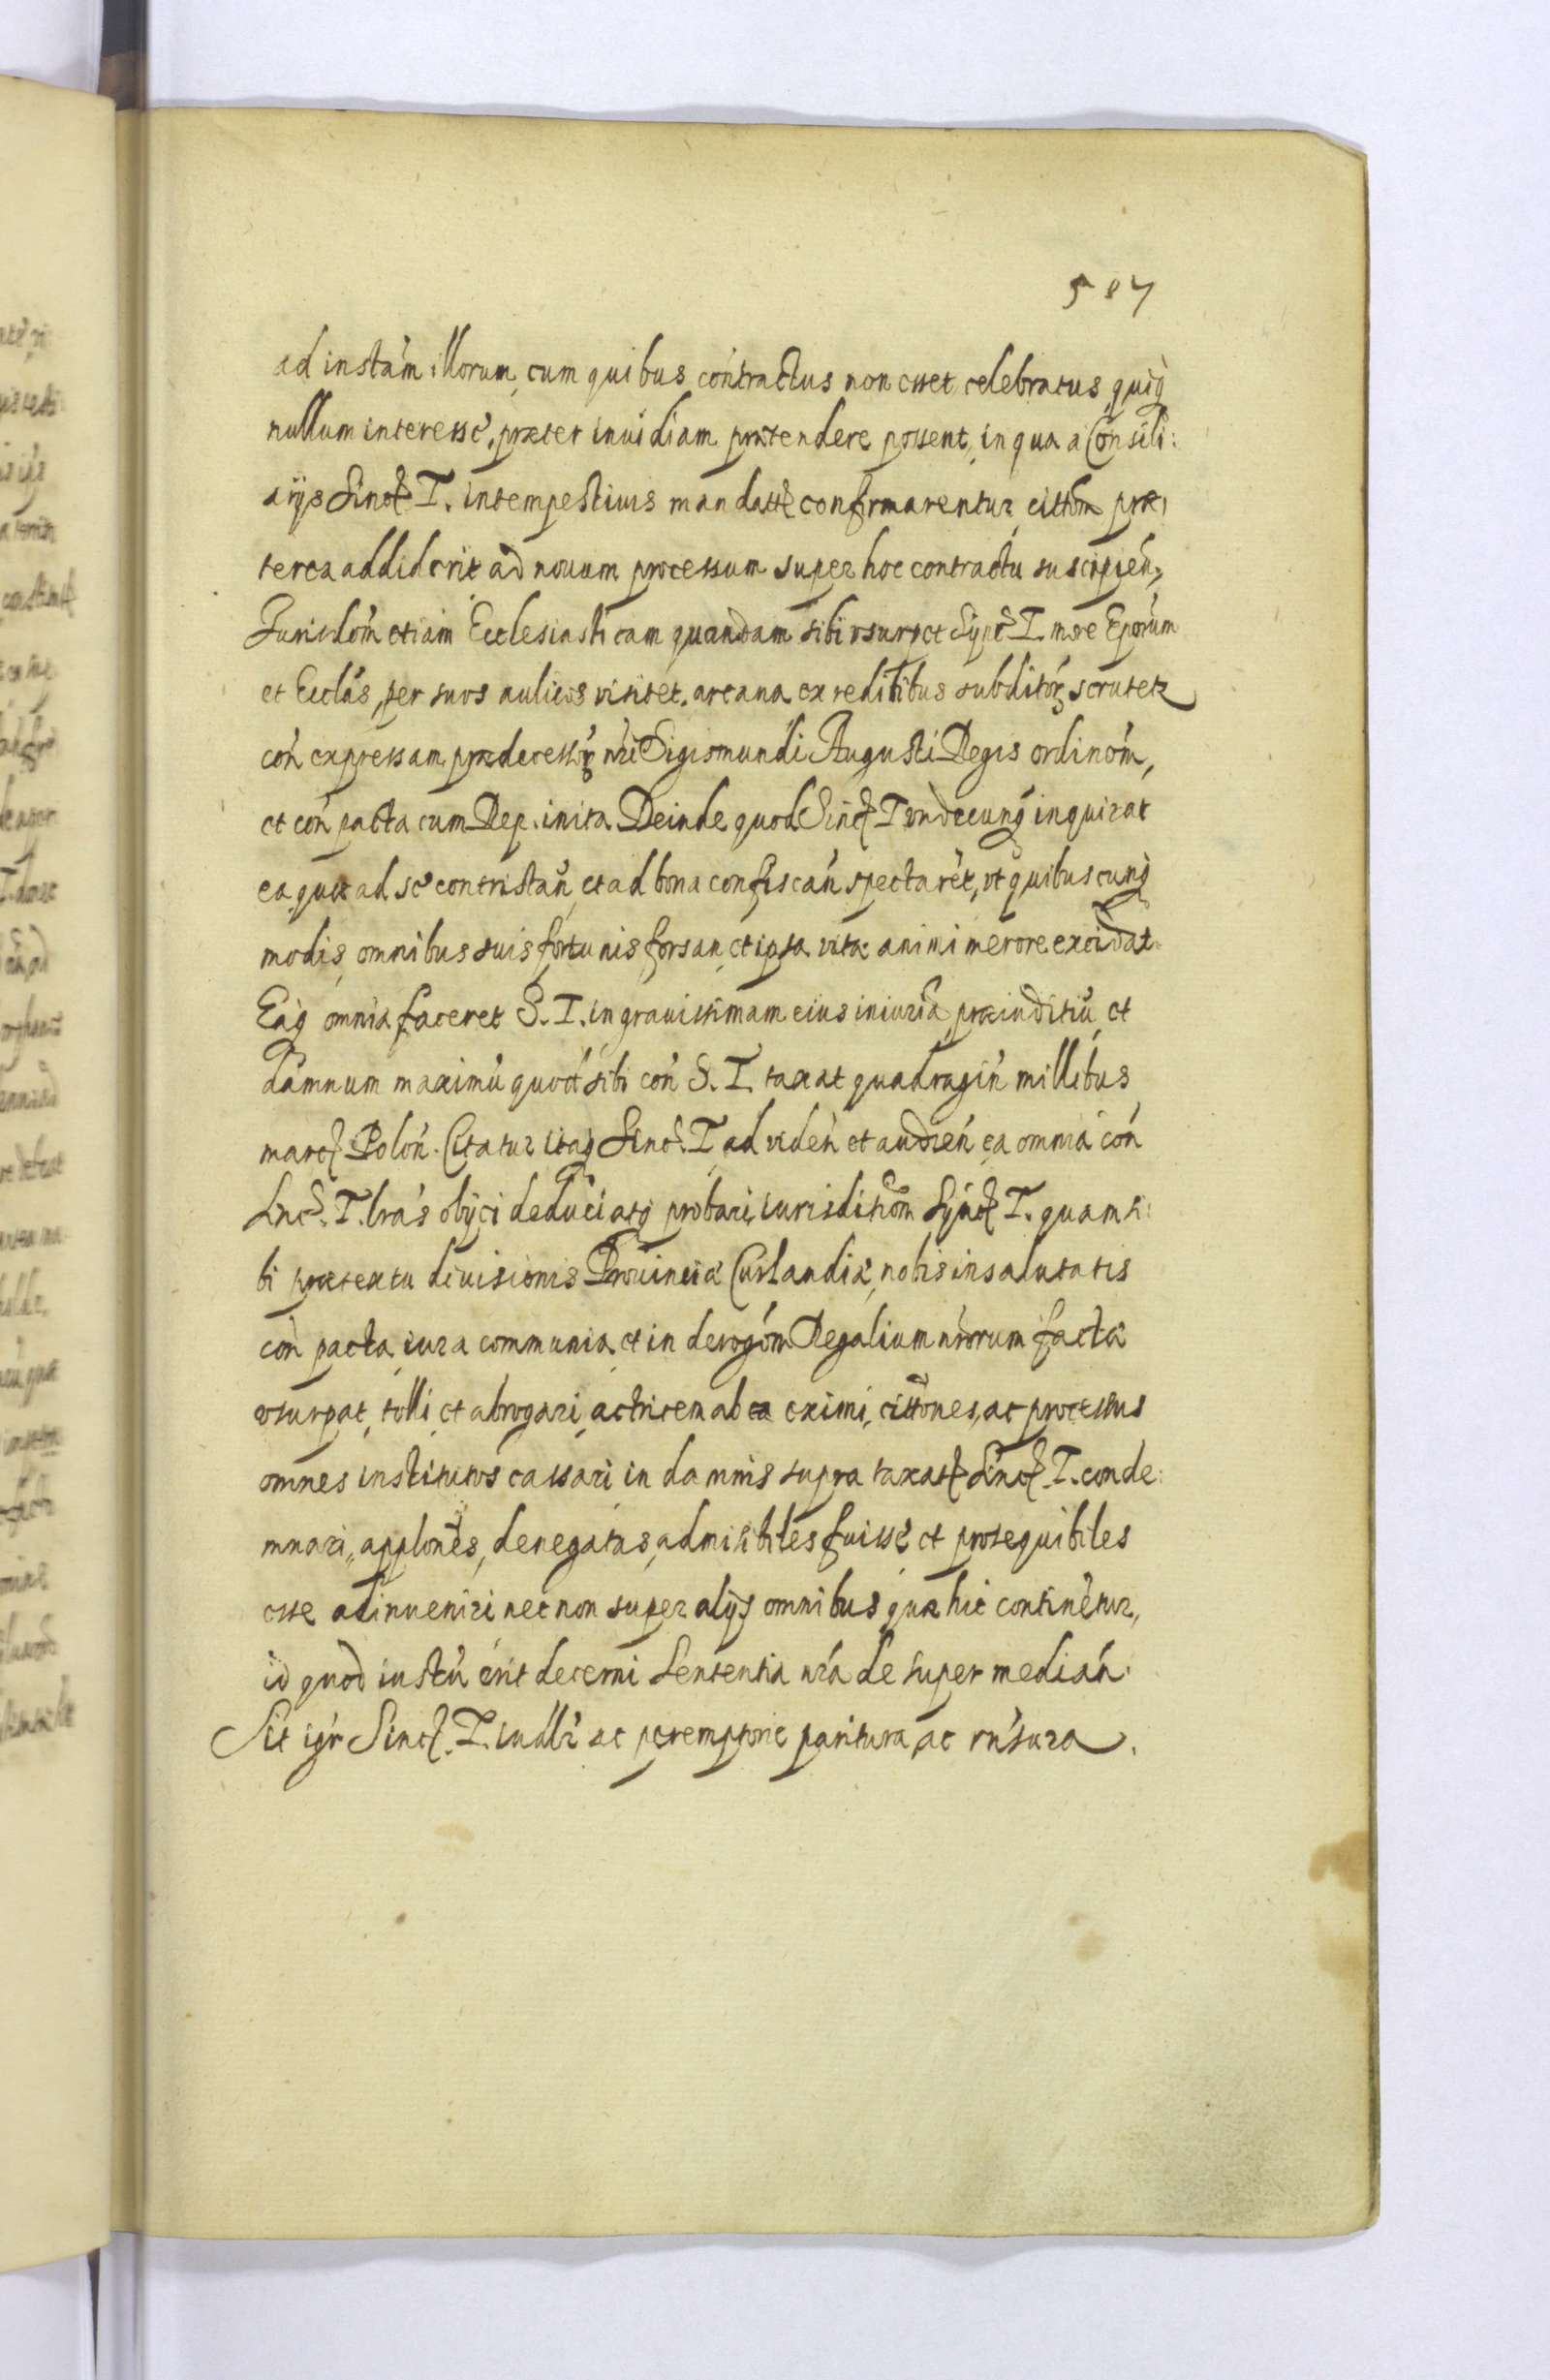 587
ad instam illorum, cum quibus contractus non esset celebratus, quiq
nullum interesse, præter inuidiam prætendere possent, in qua a Consili:
arijs Sinctis T. intempestiuis mandatis confirmarentur, cittōm præ,
terea addiderit ad nouum processum super hoc contractu suscipień,
Jurisdōm etiam Ecclesiasticam quandam sibi vsurpet Synctas T. more Epōrum
et Ecclās, per suos aulicos visitet, arcana ex reditibus subditor scrutetr
con expressam prædecessor nri Sigismundi Augusti Regis ordinōm,
et con pacta cum Rep. inita. Deinde quod Sinctas T vndecunq inquirat
ea quæ ad se contristan et ad bona confiscan spectaret, vt quibuscunq
modis omnibus suis fortunis forsan et ipsa vita animi merore excidat.
Eaq omnia faceret S. T. in grauissimam eius iniuriā præiuditiū et
damnum maximū quod sibi con S. T. taxat quadragin millibus
marcis Polon. Citatur itaq Sinctas T ad viden et audien ea omnia con
Sinctem T. lras obijci deduci atq probari, iurisditiōm Synctis T. quam si:
bi prætextu diuisionis Prouinciæ Curlandiæ, nobis insalutatis
con pacta iura communia et in derogōm Regalium nrorum facta
vsurpat, tolli et abrogari, actricem ab ea eximi, cittōnes, ac processus
omnes institutos cassari in damnis supra taxatis Sinctem T. conde:
mnari, applōnes denegatas admisibiles fuisse et prosequibiles
esse adinueniri nec non super alijs omnibus quæ hic continētur,
id quod iustū erit decerni Sententia nrā de super median.
Sit igr Sinctas T. iudlr ac peremptorie paritura, ac rnsura.